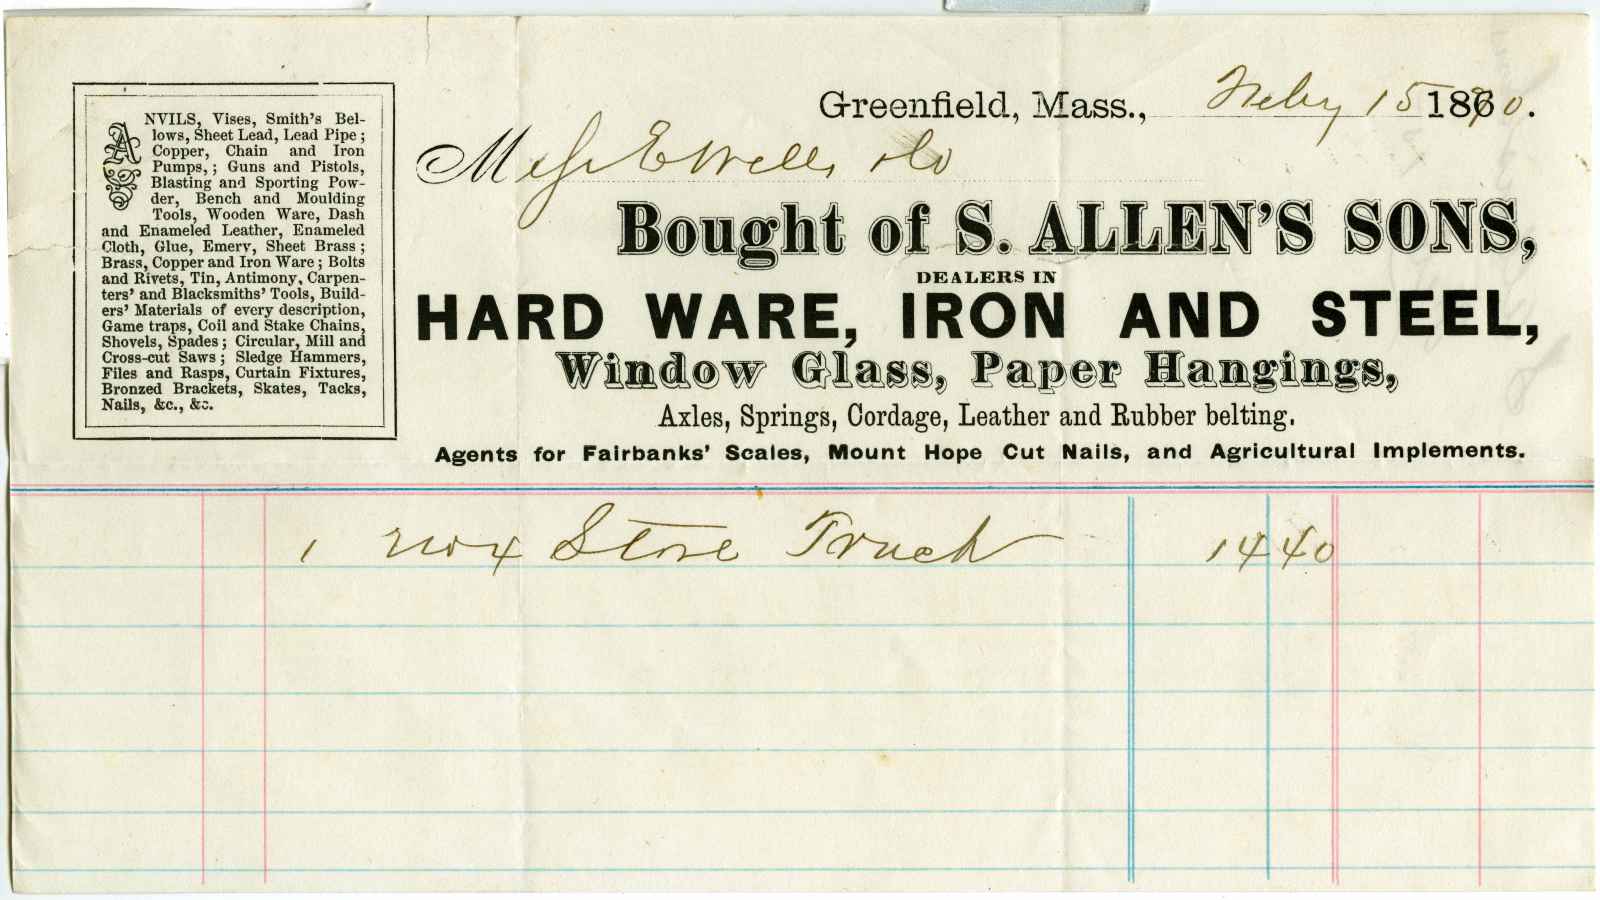 Greenfield, Mass., Feby 15 1870.
Mess E Wells & Co
Bought of S. ALLEN'S SONS,
DEALERS IN
HARD WARE, IRON AND STEEL,
Window Glass, Paper Hangings,
Axles, Springs, Cordage, Leather and Rubber belting.
Agents for Fairbanks' Scales, Mount Hope Cut Nails, and Agricultural Implements.
ANVILS, Vises, Smith's Bel-
lows, Sheet Lead, Lead Pipe;
Copper, Chain and Iron
Pumps,; Guns and Pistols,
Blasting and Sporting Pow-
der, Bench and Moulding
Tools, Wooden Ware, Dash
and Enameled Leather, Enameled
Cloth, Glue, Emery, Sheet Brass;
Brass, Copper and Iron Ware; Bolts
and Rivets, Tin, Antimony, Carpen-
ters' and Blacksmiths' Tools, Build-
ers' Materials of every description,
Game traps, Coil and Stake Chains,
Shovels, Spades; Circular, Mill and
Cross-cut Saws; Sledge Hammers,
Files and Rasps, Curtain Fixtures,
Bronzed Brackets, Skates, Tacks,
Nails, &c., &c.
1 No 4 Store Truck 14 40